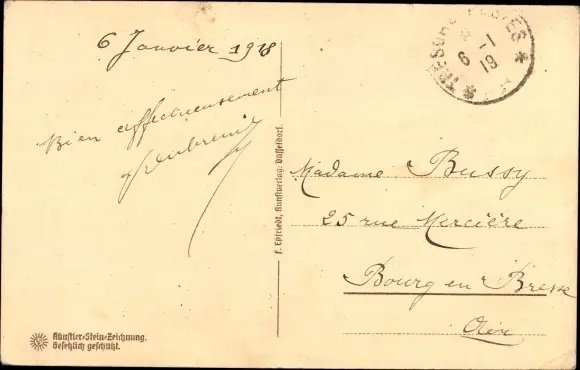 6 Janvier 1918
Bien affectueusement
TRESOR ET POSTES
6 -1
19
F. Epfriedt, Kunstverlag, Düsseldorf.
Madame Bussy
25 rue Mercière
Bourg en Bresse
Ain
Künstler-Stein-Zeichnung.
Gesetzlich geschützt.